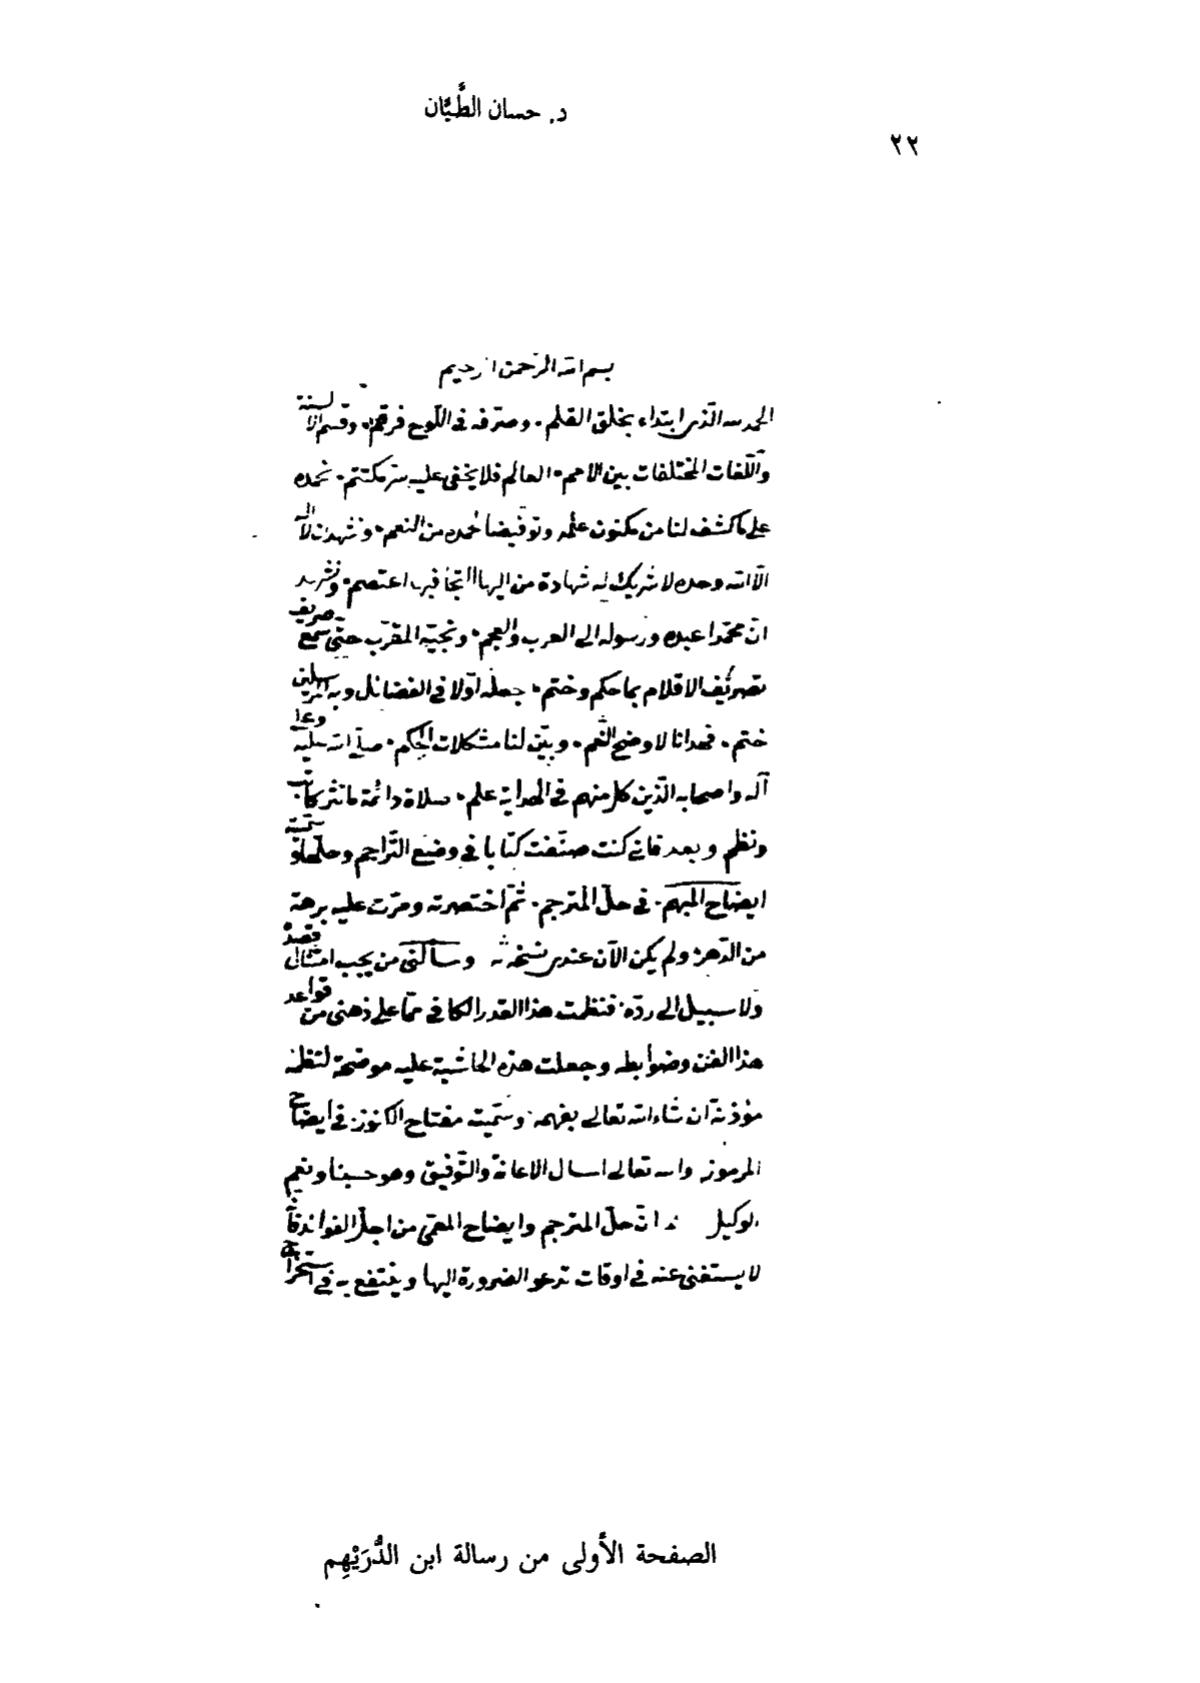 د. حسان الطَّيَّان
٢٢
بسم الله الرّحمن الرحيم
الحمد لله الّذى ابتداء بخلق القلم. وصرّفه فى اللّوح فرقم. وقسم الالسنة
واللّغات المختلفات بين الامم. العالم فلا يخفى عليه سرّ مكتتم. نحمده
على ما كشف لنا من مكنون علمه وتوفيضا نحمده من النعم. ونشهد ان لا اله
الّا الله وحده لا شريك له شهادة من اليها التجا فبها اعتصم. ونشهد
انّ محمّدا عبده ورسوله الى العرب والعجم. ونجيّه المقرّب حتّى سمع صريف
تصريف الاقلام بما حكم وختم. جعله اوّلا فى الفضائل وبه المرسلين
ختم. فهدانا لاوضح اللقم. وبيّن لنا مشكلات الحكم. صلّى الله عليه وعلى
آله واصحابه الّذين كل منهم فى الهداية علم. صلاة دائمة ما نثر كاتب
ونظم وبعد فانى كنت صنّفت كتابا فى وضع التّراجم وحلّها وسمّيته
ايضاح المبهم. فى حلّ المترجم. ثمّ اختصرته ومرّت عليه برهة
من الدّهر ولم يكن الآن عندى نسخة وسألنى من يجب امتثال قصده
ولا سبيل الى ردّه. فنظمت هذا القدر الكافى ممّا على ذهنى من قواعد
هذا الفن وضوابطه وجعلت هذه الحاشية عليه موضحة لنظمه
مؤذنة ان شاء الله تعالى بفهمه. وسمّيته مفتاح الكنوز فى ايضاح
المرموز والله تعالى اسال الاعانة والتّوفيق وهو حسبنا ونعم
الوكيل انّ حلّ المترجم وايضاح المعمّى من اجلّ الفوائد
لا يستغنى عنه فى اوقات تدعو الضرورة اليها وينتفع به فى استخراج
الصفحة الأولى من رسالة ابن الدُّرَيْهِم